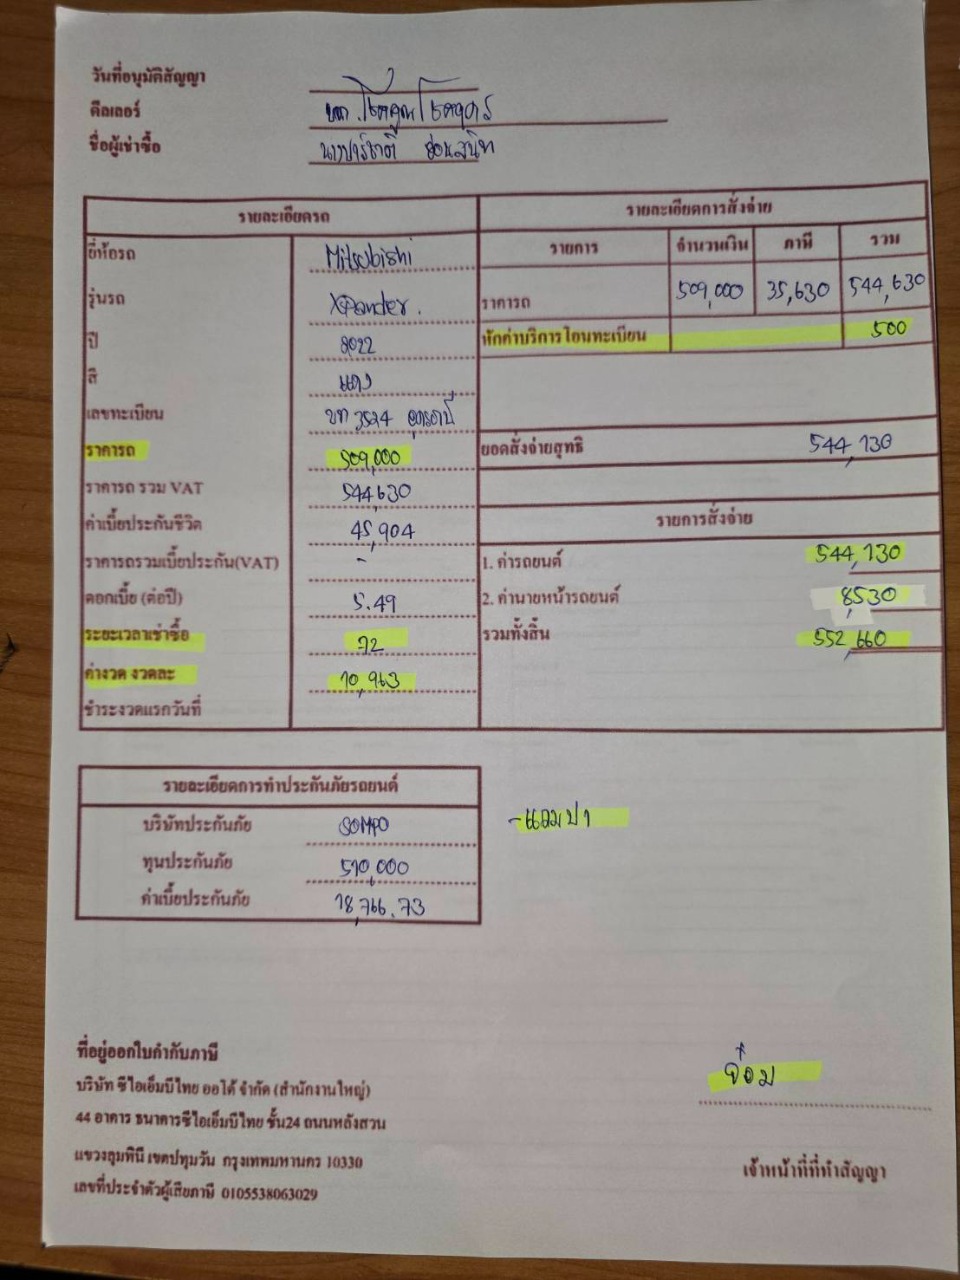 วันที่อนุมัติสัญญา
ดีลเลอร์ บจก. โชคคูณโชคถาวร
ชื่อผู้เช่าซื้อ นางปาริชาติ อ่อนสนิท
รายละเอียดรถ
ยี่ห้อรถ Mitsubishi
รุ่นรถ Xpander.
ปี 2022
สี แดง
เลขทะเบียน ขท 3524 อุดรธานี
ราคารถ 509,000
ราคารถ รวม VAT 544,630
ค่าเบี้ยประกันชีวิต 45,904
ราคารถรวมเบี้ยประกัน(VAT) -
ดอกเบี้ย (ต่อปี) 5.49
ระยะเวลาเช่าซื้อ 72
ค่างวด งวดละ 10,963
ชำระงวดแรกวันที่
รายละเอียดการสั่งจ่าย
รายการ จำนวนเงิน ภาษี รวม
ราคารถ 509,000 35,630 544,630
หักค่าบริการโอนทะเบียน 500
ยอดสั่งจ่ายสุทธิ 544,130
รายการสั่งจ่าย
1. ค่ารถยนต์ 544,130
2. ค่านายหน้ารถยนต์ 8,530
รวมทั้งสิ้น 552,660
รายละเอียดการทำประกันภัยรถยนต์
บริษัทประกันภัย SOMPO
ทุนประกันภัย 510,000
ค่าเบี้ยประกันภัย 18,766.73
- แอมปา
ที่อยู่ออกใบกำกับภาษี
บริษัท ซีไอเอ็มบีไทย ออโต้ จำกัด (สำนักงานใหญ่)
44 อาคาร ธนาคารซีไอเอ็มบีไทย ชั้น24 ถนนหลังสวน
แขวงลุมพินี เขตปทุมวัน กรุงเทพมหานคร 10330
เลขที่ประจำตัวผู้เสียภาษี 0105538063029
จ๋อม
เจ้าหน้าที่ที่ทำสัญญา